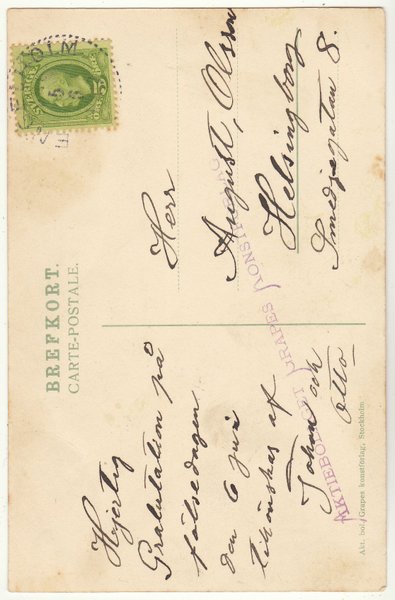 BREFKORT.
CARTE-POSTALE.
Hjertlig
Gratulation på
födsedagen
den 6 juni
tilönskas af
Johan och
Otto
Herr
August, Olsson
Helsingborg
Smedjegatan 8.
SVERIGE
5
AKTIEBOLAGET GRAPES KONSTFÖRLAG
Akt. bol. Grapes konstförlag, Stockholm